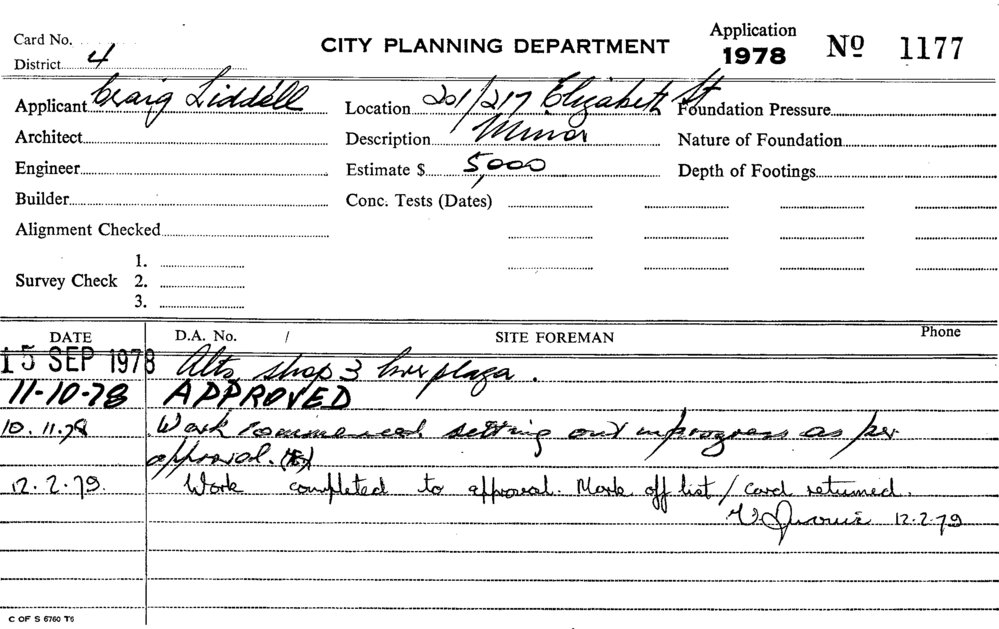 Card No.
CITY PLANNING DEPARTMENT
Application
1978
No 1177
District 4
Applicant Craig Liddell
Location 201/217 Elizabeth St
Foundation Pressure
Architect
Description Minor
Nature of Foundation
Engineer
Estimate $ 5,000
Depth of Footings
Builder
Conc. Tests (Dates)
Alignment Checked
Survey Check
1.
2.
3.
DATE
D.A. No. /
SITE FOREMAN
Phone
15 SEP 1978 Alts shop 3 lwr plaza.
11-10-78 APPROVED
10.11.78 Work commenced setting out in progress as per
approval.
12.2.79. Work completed to approval. Mark off list / card returned.
12.2.79
C OF S 6760 T6